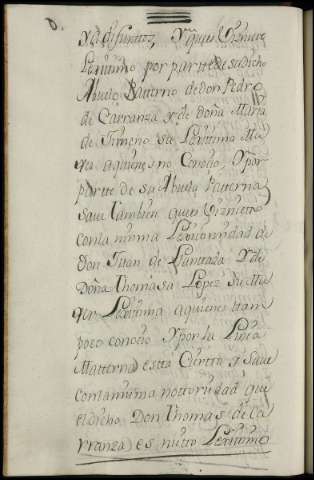 Ya difuntos, Y que es Viznieto
Lexitimo por parte de su dicho
Abuelo Paterno de don Pedro
de Carranza y de doña Maria
de Timeno su Lexitima Mu
ger a quienes no Conocio, Y por
parte de su Abuela Paterna
Save tambien que es Viznieto
con la misma Lexitimidad de
don Juan de Y de
Doña Thomasa Lopez su Mu
ger Lexitima a quienes tam
poco conocio Y por la Linea
Materna esta Cierto, y Save
con la misma notoriedad que
el dicho Don Thomas de Ca
rranza es nieto Lexitimo